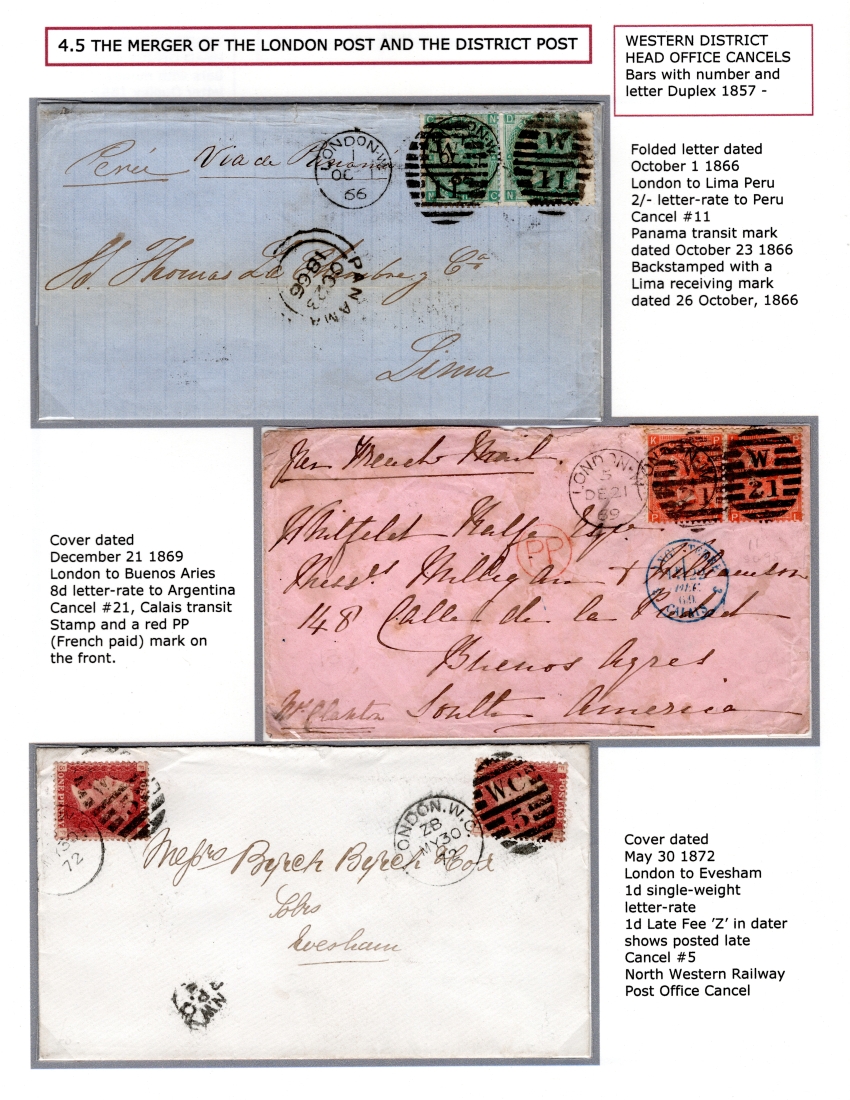 4.5 THE MERGER OF THE LONDON POST AND THE DISTRICT POST
WESTERN DISTRICT
HEAD OFFICE CANCELS
Bars with number and
letter Duplex 1857 -
Folded letter dated
October 1 1866
London to Lima Peru
2/- letter-rate to Peru
Cancel #11
Panama transit mark
dated October 23 1866
Backstamped with a
Lima receiving mark
dated 26 October, 1866
Via de Panama
LONDON.W
1
OC
66
W
11
W
11
PANAMA
OC 23
1866
Lima
Cover dated
December 21 1869
London to Buenos Aries
8d letter-rate to Argentina
Cancel #21, Calais transit
Stamp and a red PP
(French paid) mark on
the front.
Per French Mail
LONDON.W
5
DE 21
69
W
21
W
21
PP
CALAIS
148 Calle de la
Buenos Ayres
South America
Cover dated
May 30 1872
London to Evesham
1d single-weight
letter-rate
1d Late Fee 'Z' in dater
shows posted late
Cancel #5
North Western Railway
Post Office Cancel
ONE PENNY
72
LONDON.W.C
ZB
MY 30
72
W.C
5
POSTAGE
Messrs Byrch Byrch & Cox
Solrs
Evesham